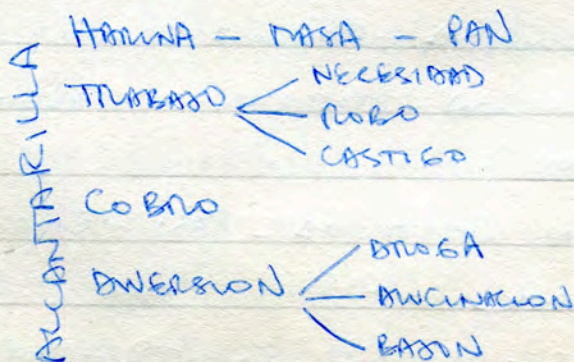 ALCANTARILLA
HARINA - MASA - PAN
TRABAJO
NECESIDAD
ROBO
CASTIGO
COBRO
DIVERSION
DROGA
ALUCINACION
BAJON